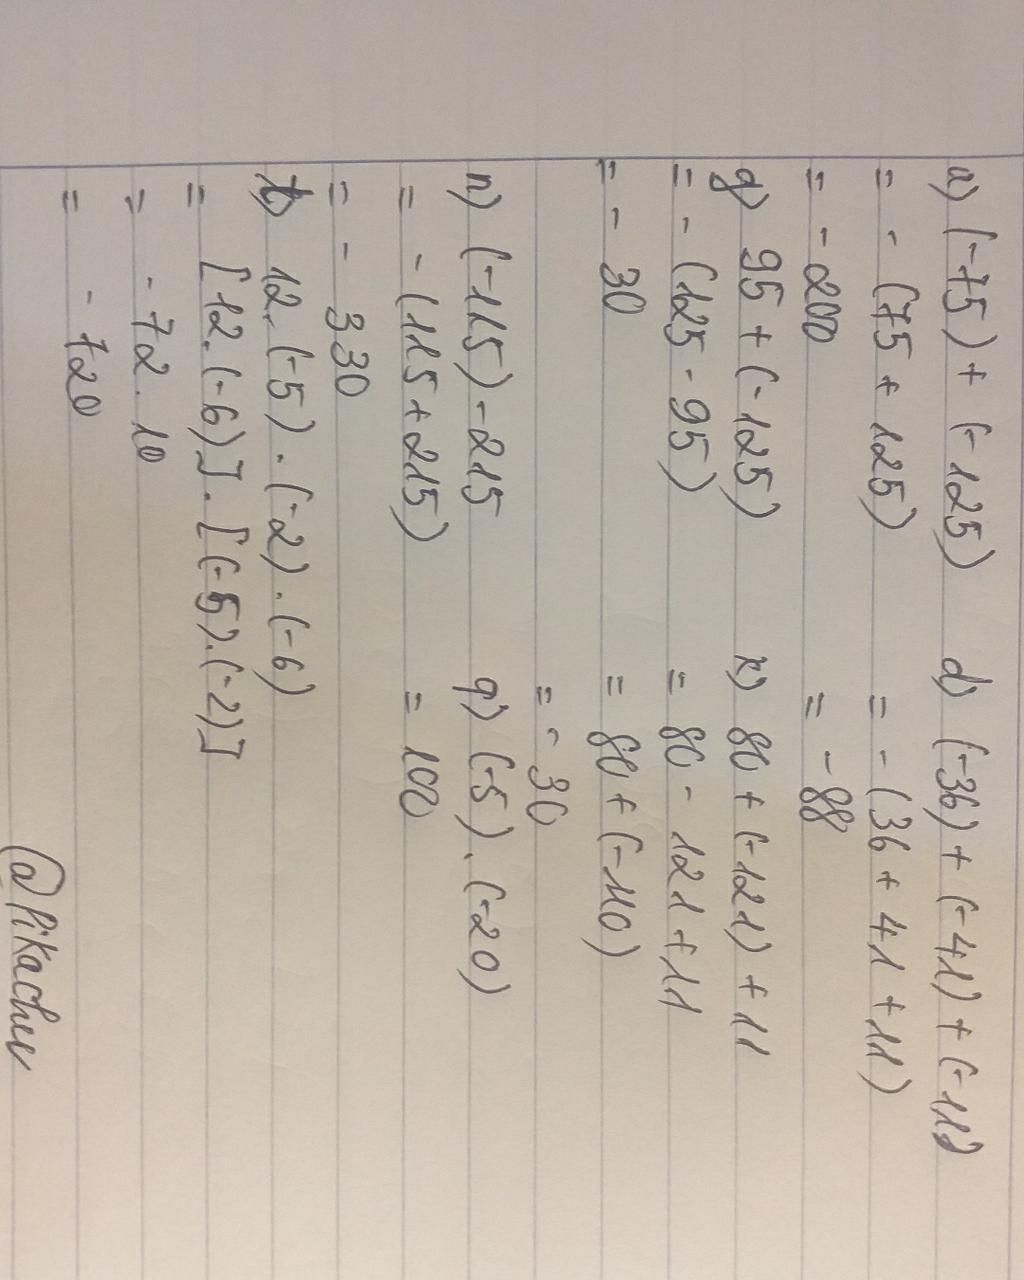 a) (-75) + (-125)
= - (75 + 125)
= - 200
d) (-36) + (-41) + (-11)
= - (36 + 41 + 11)
= - 88
g) 95 + (-125)
= - (125 - 95)
= - 30
k) 80 + (-121) + 11
= 80 - 121 + 11
= 80 + (-110)
= - 30
n) (-115) - 215
= - (115 + 215)
= - 330
q) (-5) . (-20)
= 100
t) 12. (-5) . (-2) . (-6)
= [12. (-6)] . [(-5).(-2)]
= - 72 . 10
= - 720
@Pikachu